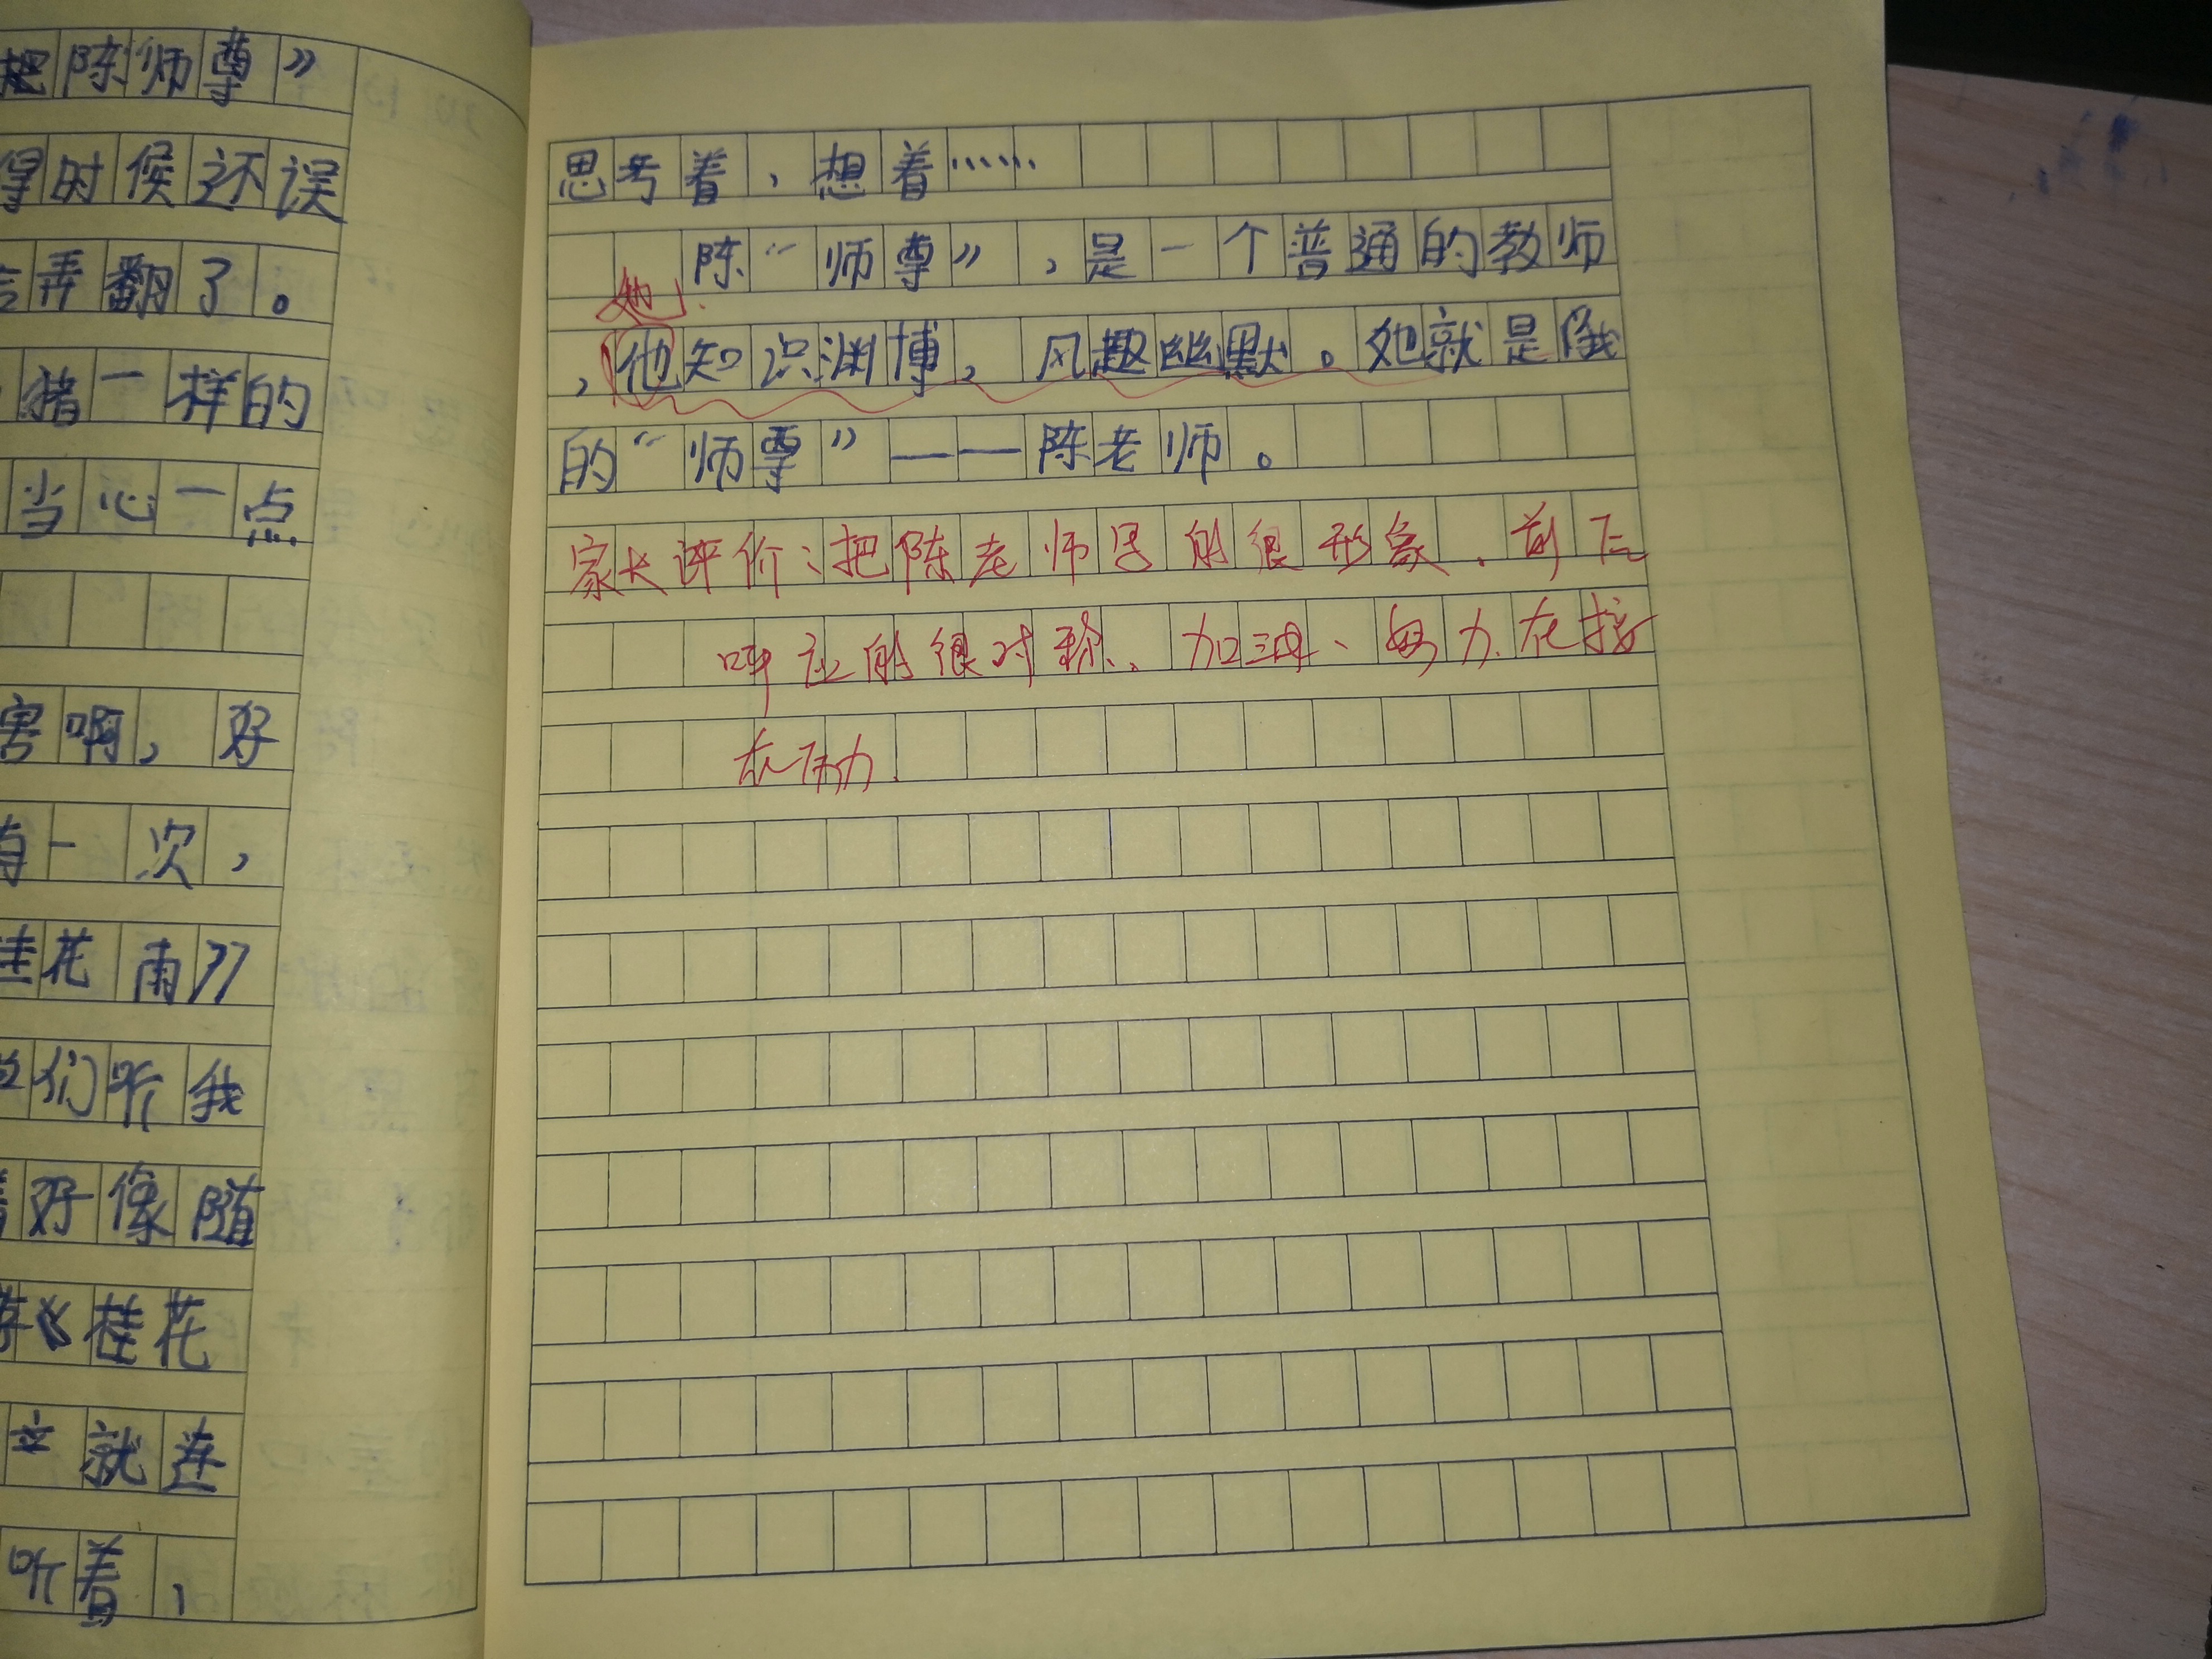 把陈师尊”
得时候还误
弄翻了。
猪一样的
当心一点
害啊，好
有一次，
桂花雨》
们听我
好像随
《桂花
就连
听着，
思考着，想着……
陈“师尊”，是一个普通的教师
她
，他知识渊博，风趣幽默。她就是我
的“师尊”——陈老师。
家长评价：把陈老师写的很形象．前后
呼应的很对称．加油、努力．在接
在励．